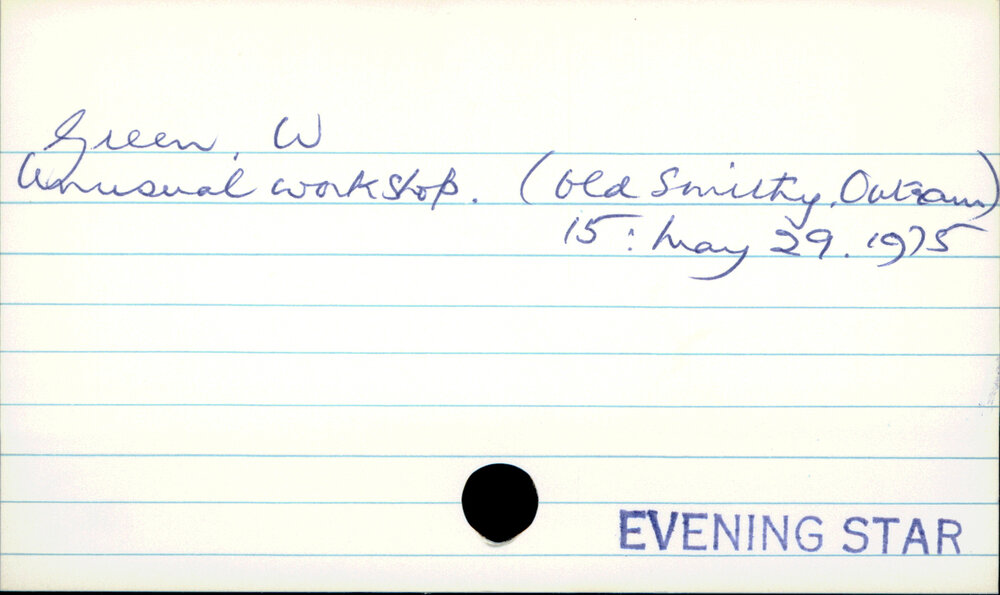 Green, W
Unusual workshop. (Old Smithy, Outram)
15: May 29. 1975
EVENING STAR